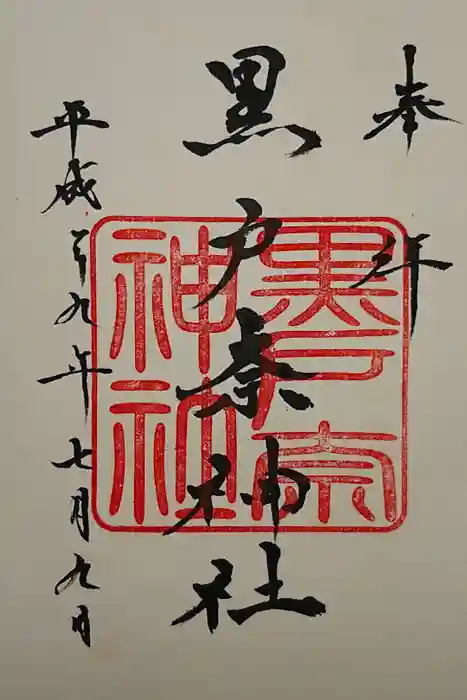 奉拝
黒戸奈神社
黒戸奈
神社
平成二十九年七月九日